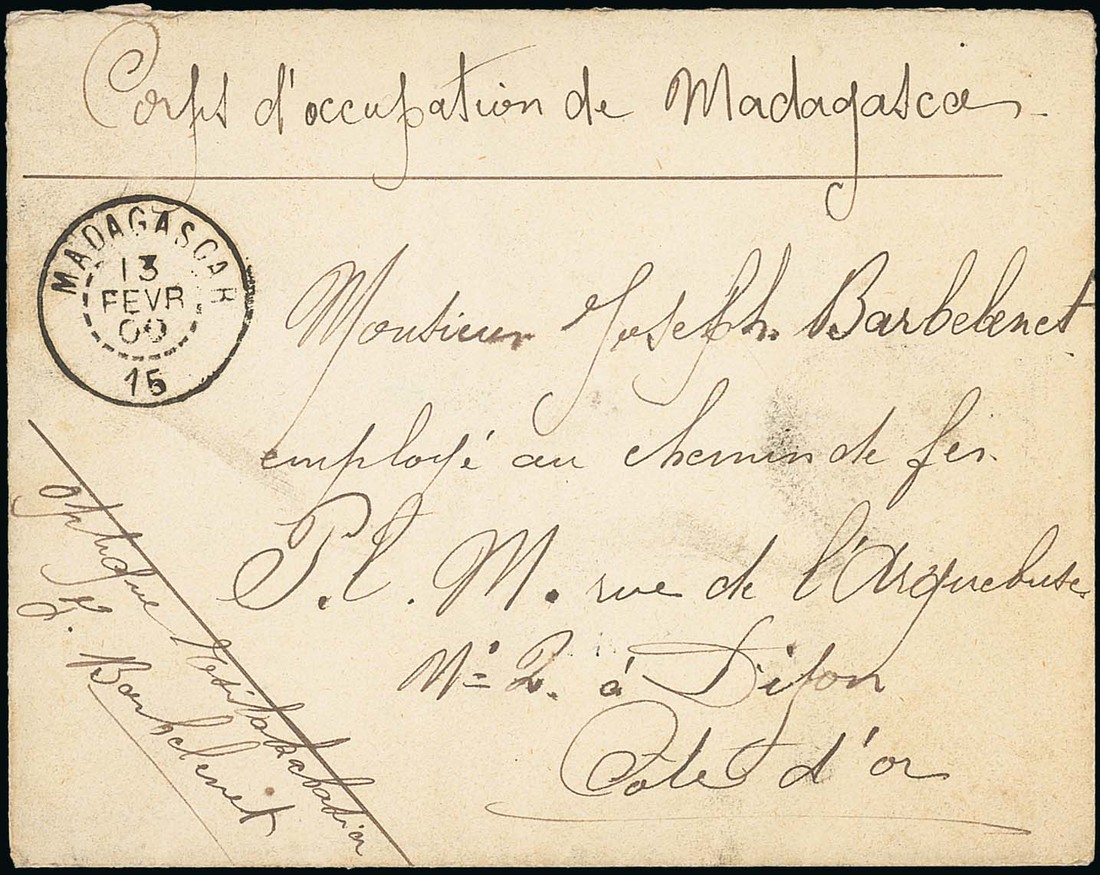 Corps d'occupation de Madagascar
MADAGASCAR
13
FEVR
00
15
Monsieur Joseph Barbelenet
employé au chemin de fer
P. L. M. rue de l'Arquebuse
N° 2. à Dijon
Côte d'or
optique
G. Barbelenet